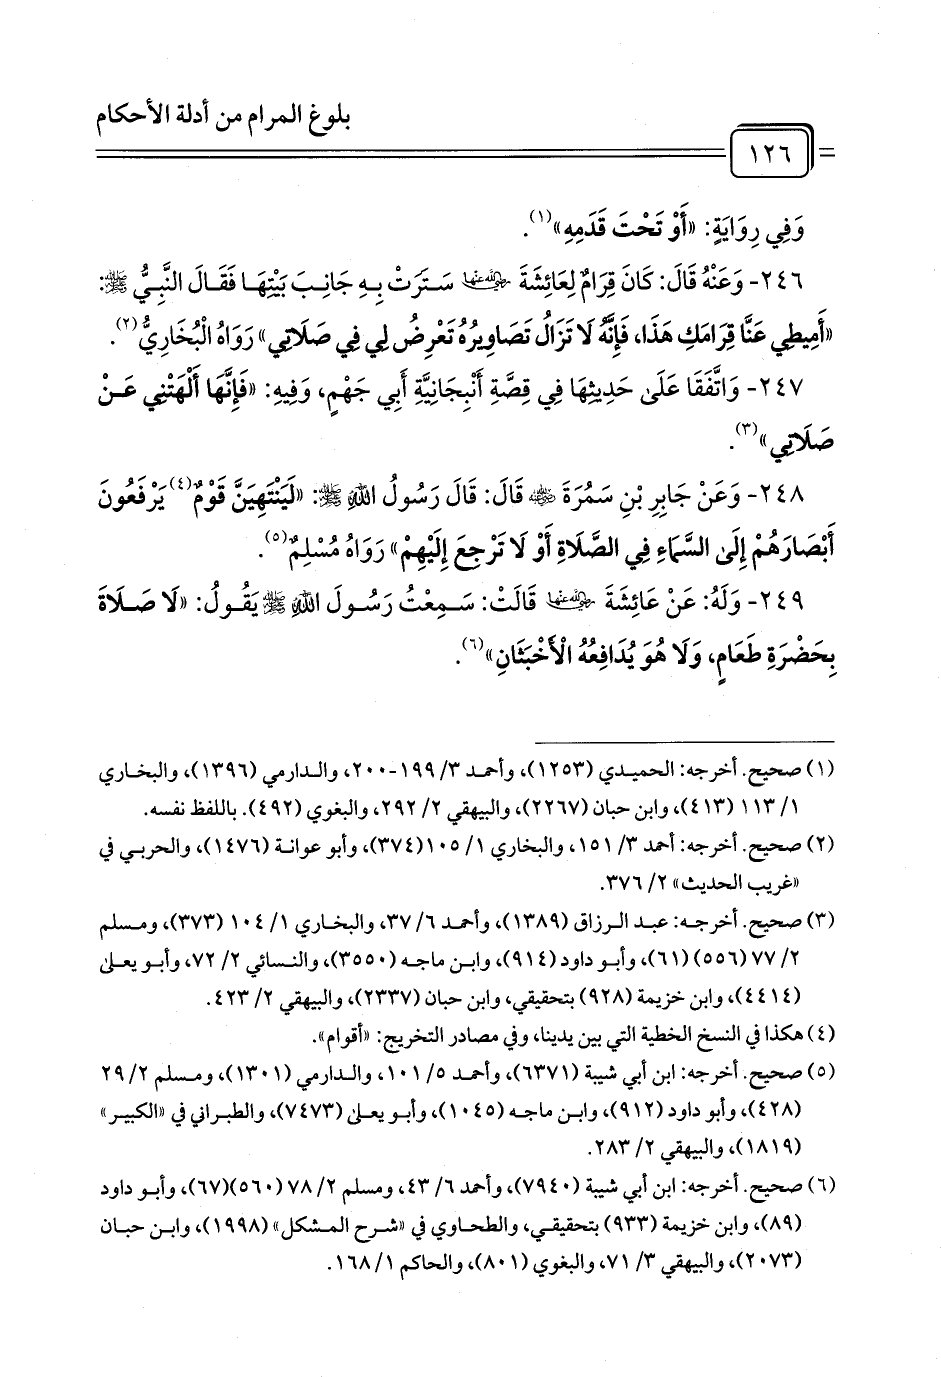 بلوغ المرام من أدلة الأحكام
١٢٦
وَفِي رِوَايَةٍ: «أَوْ تَحْتَ قَدَمِهِ»(١).
٢٤٦- وَعَنْهُ قَالَ: كَانَ قِرَامٌ لِعَائِشَةَ رضي الله عنها سَتَرَتْ بِهِ جَانِبَ بَيْتِهَا فَقَالَ النَّبِيُّ ﷺ:
«أَمِيطِي عَنَّا قِرَامَكِ هَذَا، فَإِنَّهُ لَا تَزَالُ تَصَاوِيرُهُ تَعْرِضُ لِي فِي صَلَاتِي» رَوَاهُ الْبُخَارِيُّ(٢).
٢٤٧- وَاتَّفَقَا عَلَى حَدِيثِهَا فِي قِصَّةِ أَنْبِجَانِيَّةِ أَبِي جَهْمٍ، وَفِيهِ: «فَإِنَّهَا أَلْهَتْنِي عَنْ
صَلَاتِي»(٣).
٢٤٨- وَعَنْ جَابِرِ بْنِ سَمُرَةَ رضي الله عنه قَالَ: قَالَ رَسُولُ اللهِ ﷺ: «لَيَنْتَهِيَنَّ قَوْمٌ(٤) يَرْفَعُونَ
أَبْصَارَهُمْ إِلَى السَّمَاءِ فِي الصَّلَاةِ أَوْ لَا تَرْجِعَ إِلَيْهِمْ» رَوَاهُ مُسْلِمٌ(٥).
٢٤٩- وَلَهُ: عَنْ عَائِشَةَ رضي الله عنها قَالَتْ: سَمِعْتُ رَسُولَ اللهِ ﷺ يَقُولُ: «لَا صَلَاةَ
بِحَضْرَةِ طَعَامٍ، وَلَا هُوَ يُدَافِعُهُ الْأَخْبَثَانِ»(٦).
(١) صحيح. أخرجه: الحميدي (١٢٥٣)، وأحمد ٣/ ١٩٩-٢٠٠، والدارمي (١٣٩٦)، والبخاري
١/ ١١٣ (٤١٣)، وابن حبان (٢٢٦٧)، والبيهقي ٢/ ٢٩٢، والبغوي (٤٩٢). باللفظ نفسه.
(٢) صحيح. أخرجه: أحمد ٣/ ١٥١، والبخاري ١/ ١٠٥ (٣٧٤)، وأبو عوانة (١٤٧٦)، والحربي في
«غريب الحديث» ٢/ ٣٧٦.
(٣) صحيح. أخرجه: عبد الرزاق (١٣٨٩)، وأحمد ٦/ ٣٧، والبخاري ١/ ١٠٤ (٣٧٣)، ومسلم
٢/ ٧٧ (٥٥٦) (٦١)، وأبو داود (٩١٤)، وابن ماجه (٣٥٥٠)، والنسائي ٢/ ٧٢، وأبو يعلى
(٤٤١٤)، وابن خزيمة (٩٢٨) بتحقيقي، وابن حبان (٢٣٣٧)، والبيهقي ٢/ ٤٢٣.
(٤) هكذا في النسخ الخطية التي بين يدينا، وفي مصادر التخريج: «أقوام».
(٥) صحيح. أخرجه: ابن أبي شيبة (٦٣٧١)، وأحمد ٥/ ١٠١، والدارمي (١٣٠١)، ومسلم ٢/ ٢٩
(٤٢٨)، وأبو داود (٩١٢)، وابن ماجه (١٠٤٥)، وأبو يعلى (٧٤٧٣)، والطبراني في «الكبير»
(١٨١٩)، والبيهقي ٢/ ٢٨٣.
(٦) صحيح. أخرجه: ابن أبي شيبة (٧٩٤٠)، وأحمد ٦/ ٤٣، ومسلم ٢/ ٧٨ (٥٦٠)(٦٧)، وأبو داود
(٨٩)، وابن خزيمة (٩٣٣) بتحقيقي، والطحاوي في «شرح المشكل» (١٩٩٨)، وابن حبان
(٢٠٧٣)، والبيهقي ٣/ ٧١، والبغوي (٨٠١)، والحاكم ١/ ١٦٨.